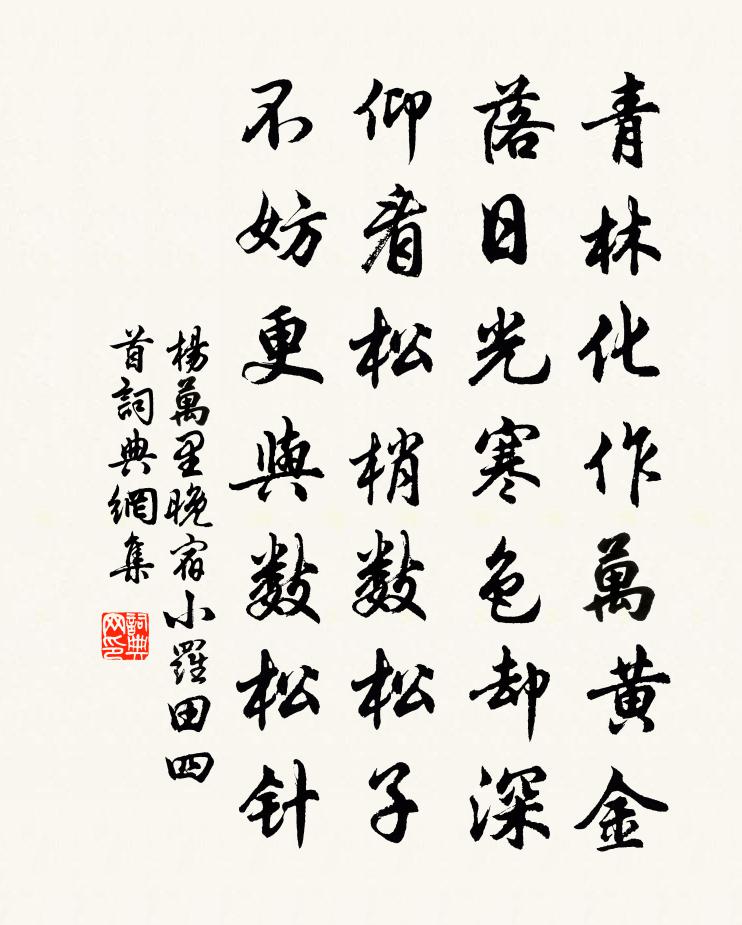 青林化作萬黄金
落日光寒色却深
仰看松梢數松子
不妨更與數松针
楊萬里晚宿小羅田四
首詞典網集
詞典网印